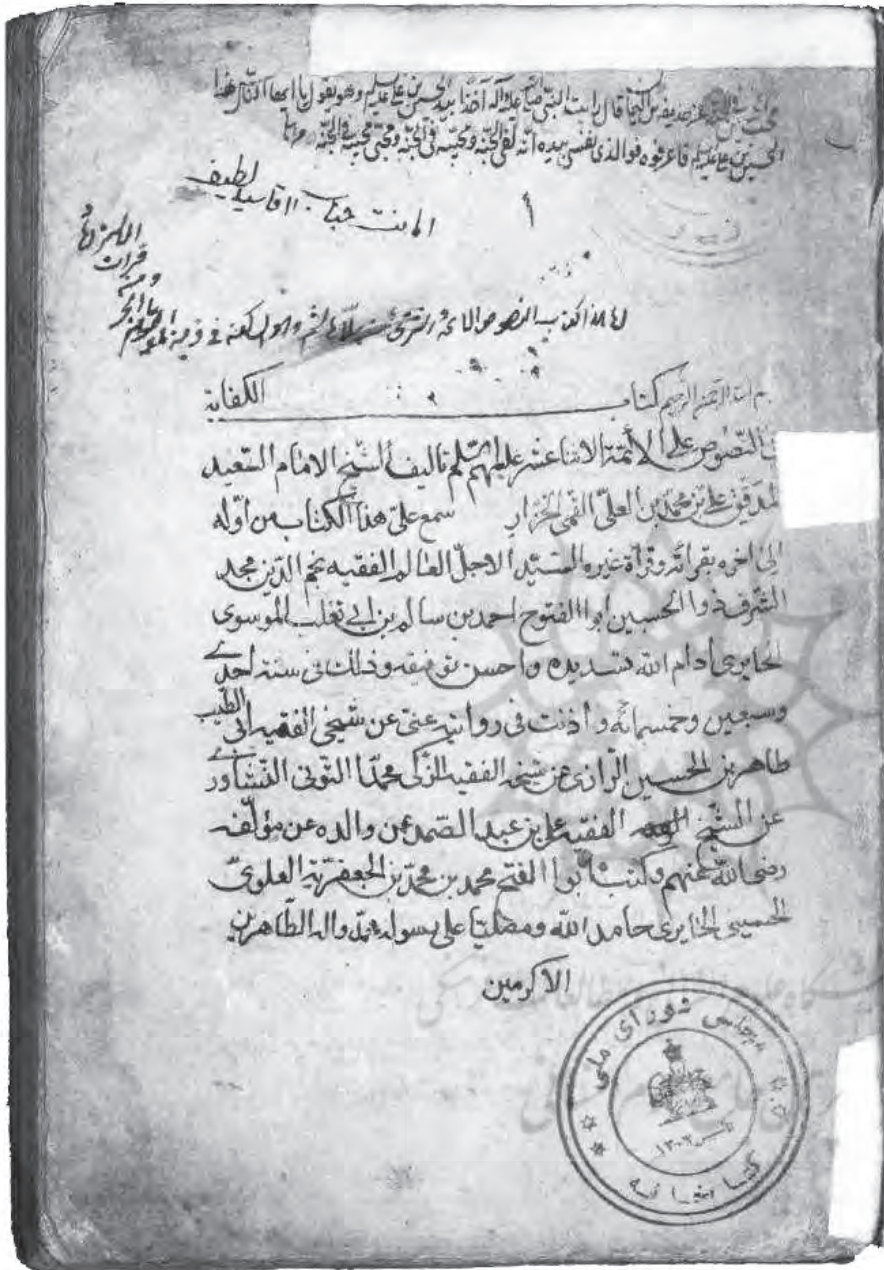 عن حذيفة بن اليمان قال رايت النبي صلى الله عليه وآله آخذا بيد الحسين بن علي عليهما وهو يقول يا ايها الناس هذا
الحسين بن علي فاعرفوه فوالذى نفسى بيده انه لفى الجنة ومحبيه فى الجنة ومحبى محبيه فى الجنة
لطيف
بسم الله الرحمن الرحيم كتاب الكفاية
فى النصوص على الائمة الاثنا عشر عليهم السلم تاليف الشيخ الامام السعيد
على بن محمد بن العلى القمى الخزاز سمع على هذا الكتاب من اوله
الى اخره بقرائته وقرأة غيره السيد الاجل العالم الفقيه نجم الدين مجد
الشرف ذو الحسبين ابو الفتوح احمد بن سالم بن ابى تغلب الموسوى
الحايرى ادام الله تسديده واحسن توفيقه وذلك فى سنة احدى
وسبعين وخمسمائة وأذنت فى روايته عنى عن شيخى الفقيه ابى الطيب
طاهر بن الحسين الرازى عن شيخه الفقيه الزكى محمد التونى النيشابورى
عن الشيخ الفقيه على بن عبد الصمد عن والده عن مؤلفه
رضى الله عنهم وكتب ابوا الفتح محمد بن محمد بن الجعفرية العلوى
الحسينى الحايرى حامد الله ومصليا على رسوله محمد واله الطاهرين
الاكرمين
مجلس شوراى ملى
كتابخانه